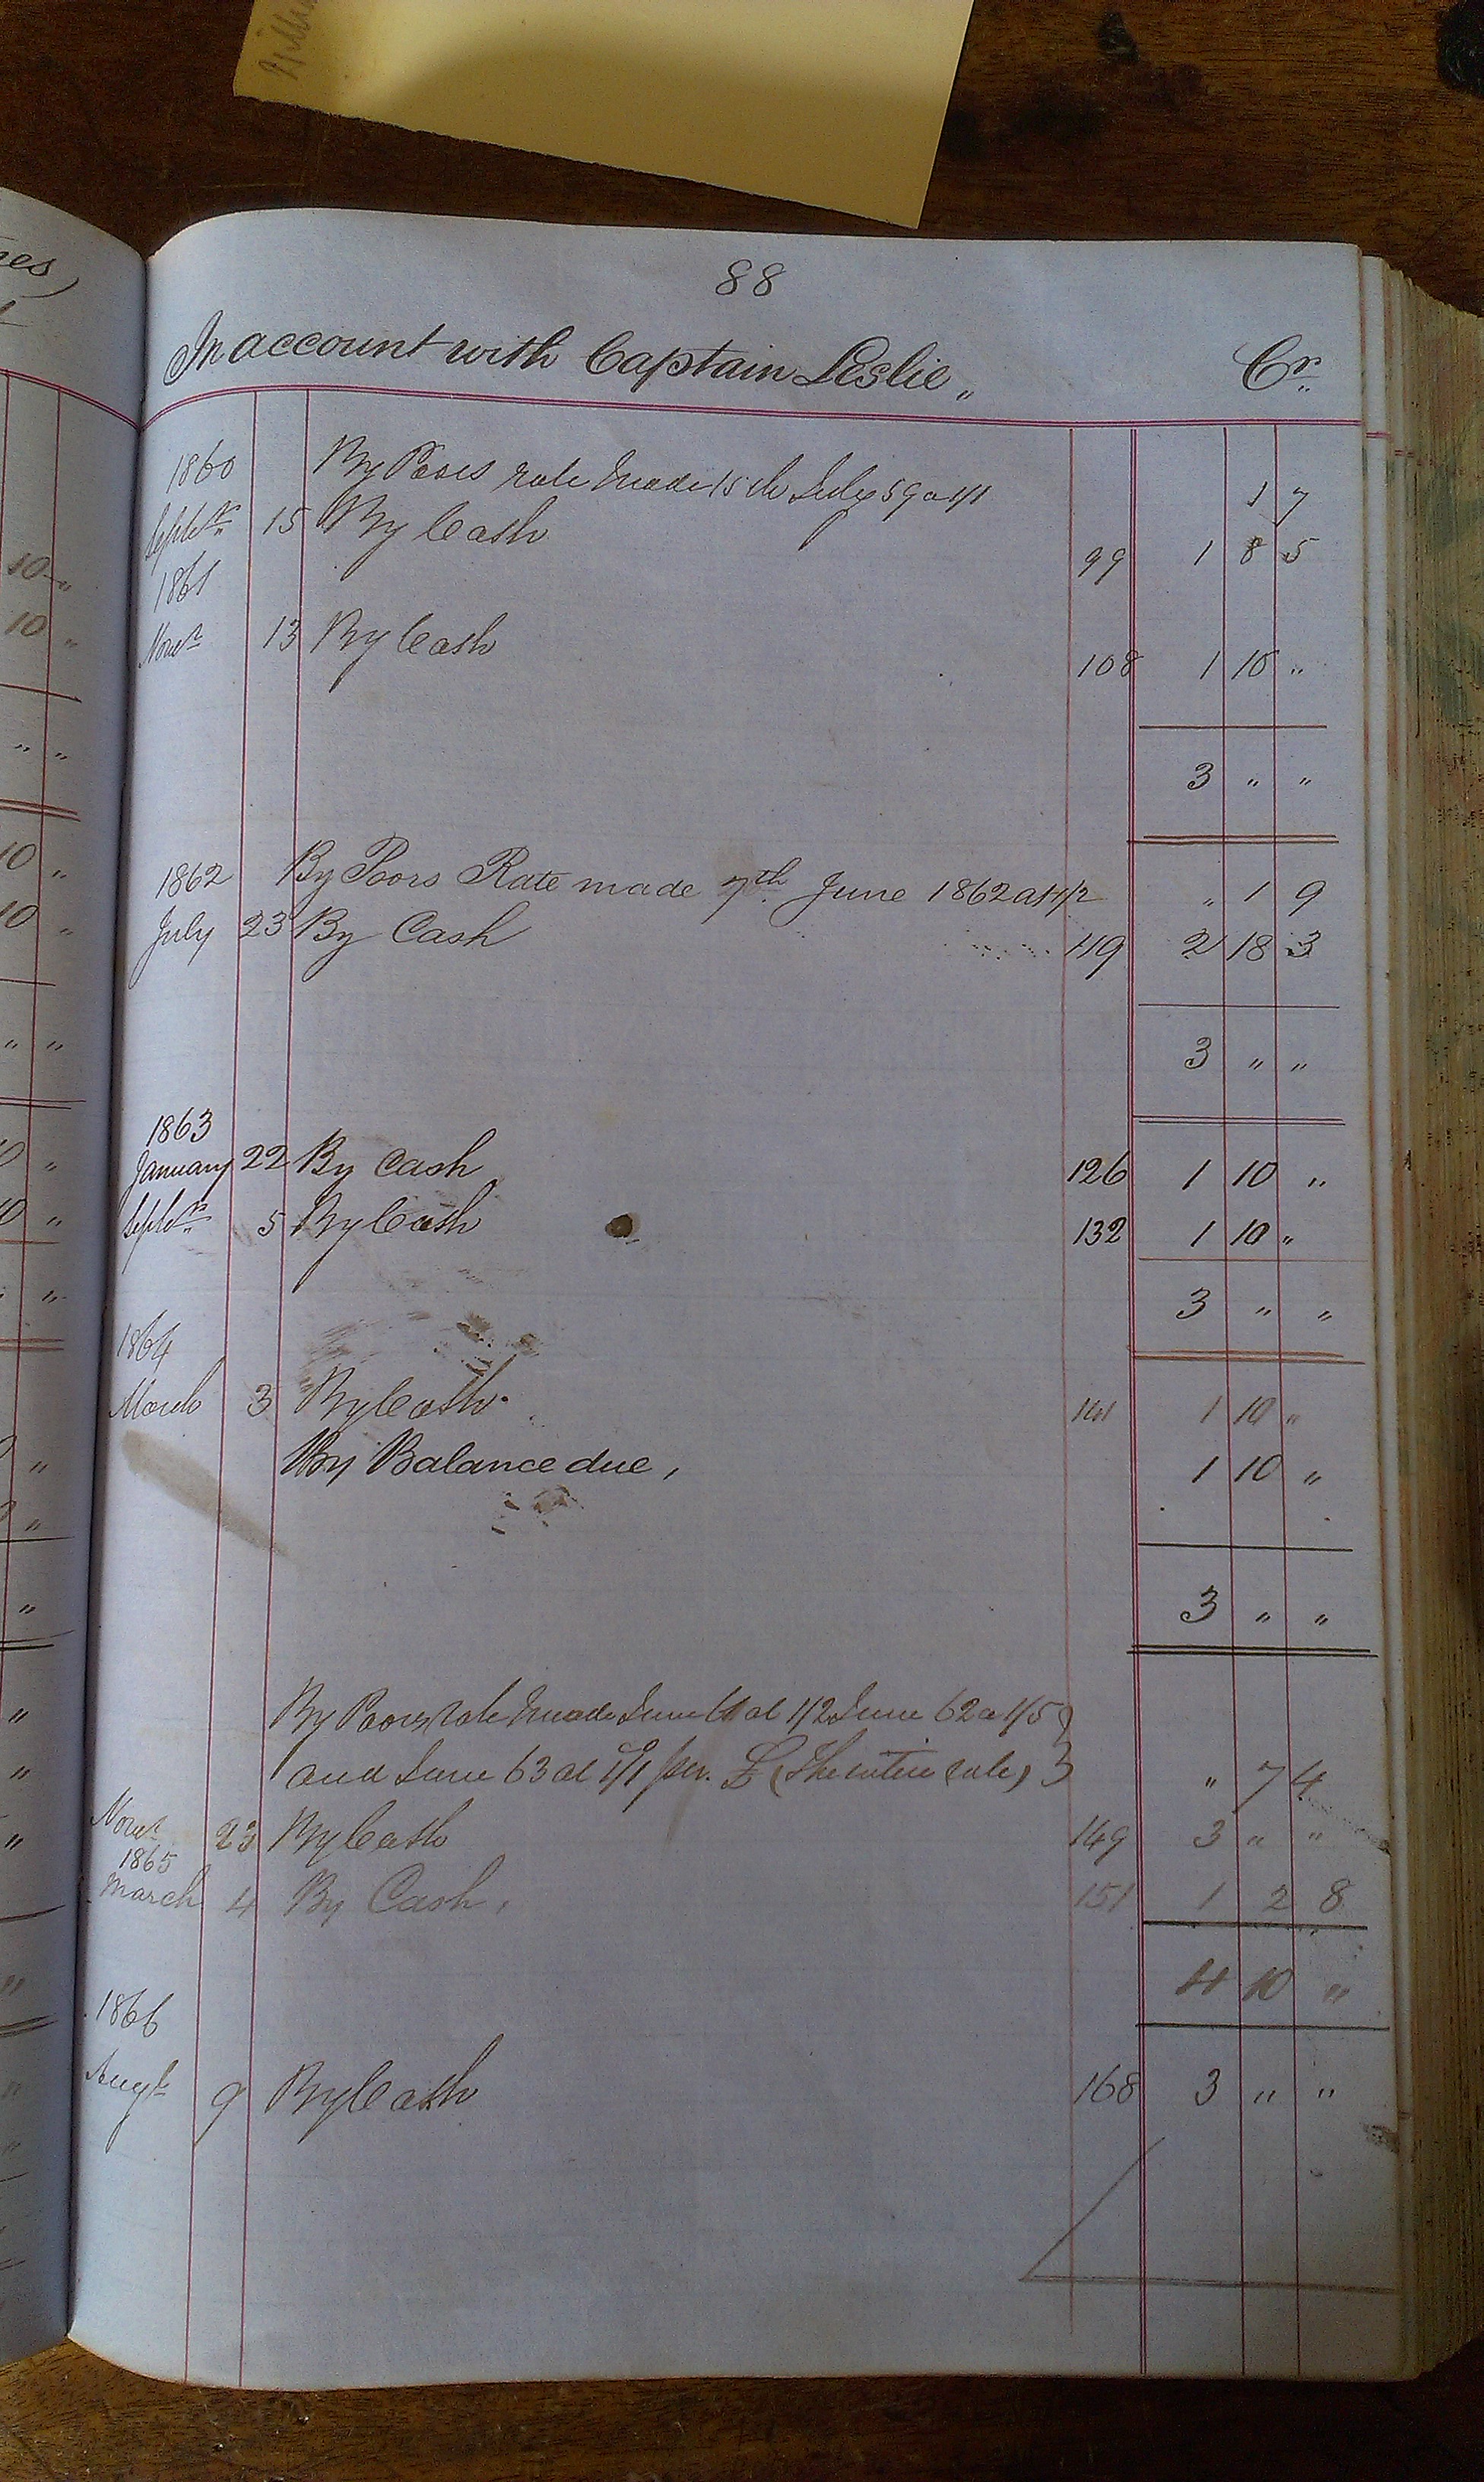 88
In account with Captain Leslie,, Cr
1860 By Poors rate made 15th July 59 a 1/1 1 7
Septr 15 By Cash 99 1 8 5
1861
Novr 13 By Cash 108 1 10 "
3 " "
1862 By Poors Rate made 7th June 1862 at 1/2 " 1 9
July 23 By Cash 119 2 18 3
3 " "
1863
January 22 By Cash 126 1 10 "
Septr 5 By Cash 132 1 10 "
3 " "
1864
March 3 By Cash 141 1 10 "
By Balance due, 1 10 "
3 " "
By Poors rate made June 61 at 1/2 June 62 a 1/5
and June 63 at 1/1 per. £ (The entire rate) " 7 4
Novr 23 By Cash 149 3 " "
1865
March 4 By Cash, 151 1 2 8
4 10 "
1866
Augt 9 By Cash 168 3 " "
10 "
10 "
" "
10 "
10 "
" "